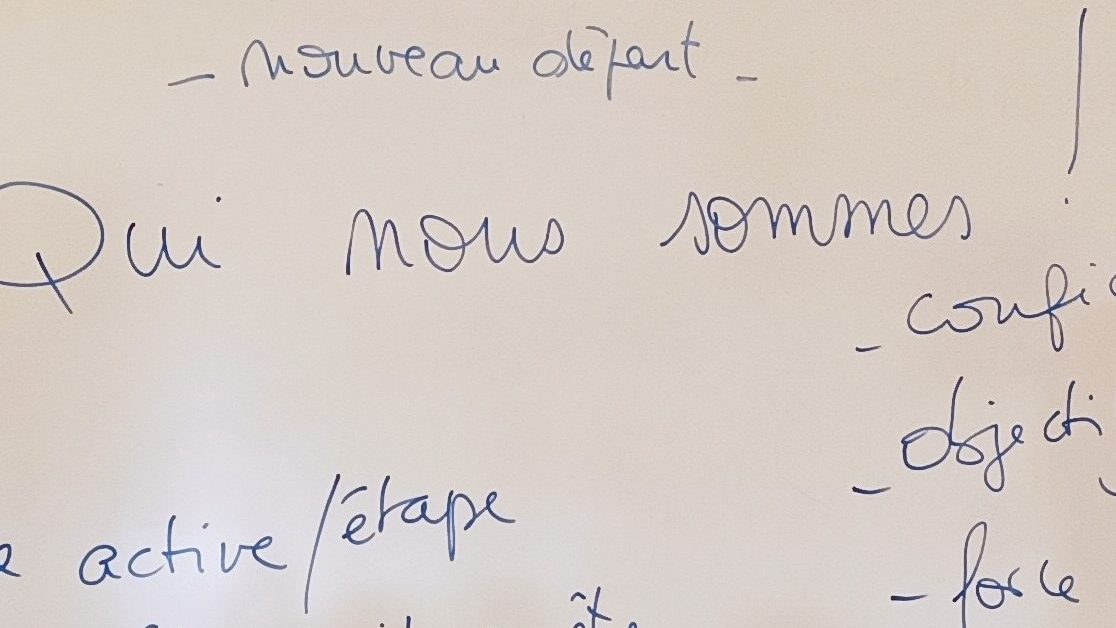 - nouveau départ -
Qui nous sommes !
- confi
- objecti
active/étape
- force